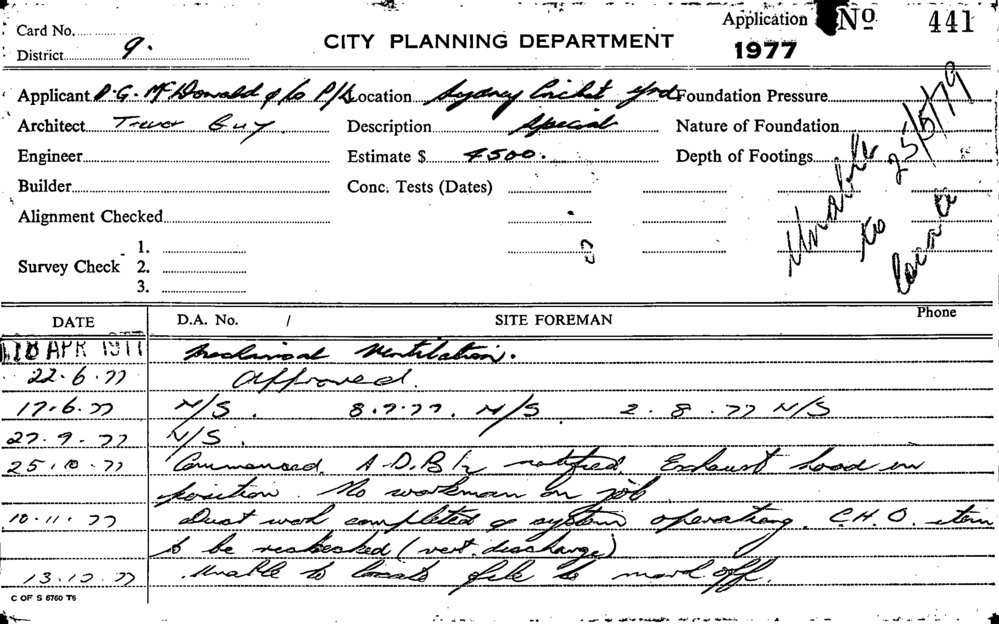 Card No. Application No 441
District 9. CITY PLANNING DEPARTMENT 1977
Applicant D.G. McDonald & Co P/L Location Sydney Cricket Grd Foundation Pressure
Architect Trevor Guy. Description Special Nature of Foundation
Engineer Estimate $ 4500. Depth of Footings
Builder Conc. Tests (Dates)
Alignment Checked
1.
Survey Check 2.
3.
Unable to locate 25/5/79
DATE D.A. No. / SITE FOREMAN Phone
APR 1977 Mechanical Ventilation.
22.6.77 Approved.
17.6.77 N/S. 8.7.77. N/S 2.8.77 N/S
27.9.77 N/S.
25.10.77 Commenced. notified. Exhaust hood in
position. No workman on job
10.11.77 Duct work completed & system operating. C.H.O. item
to be rechecked (vert. discharge)
13.12.77 Unable to locate file to mark off.
C OF S 6760 T6